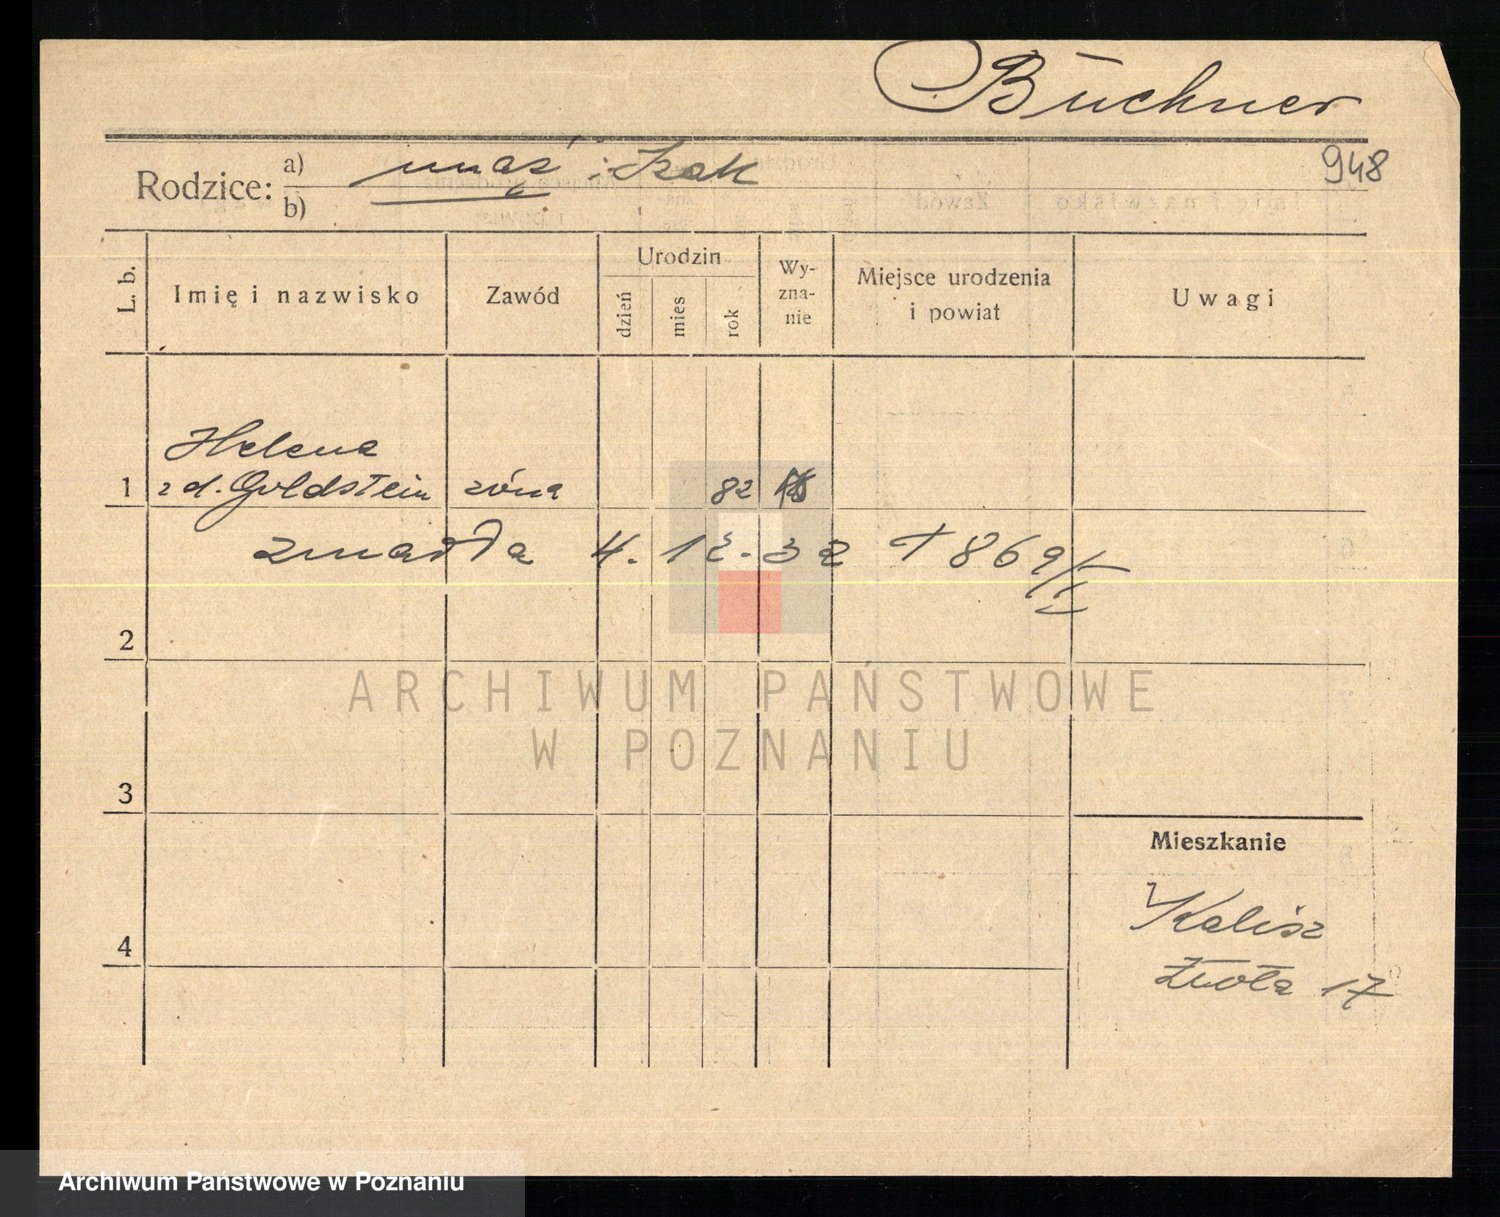 Büchner
948
Rodzice: a) mąż: Izak
b)
L. b. Imię i nazwisko Zawód Urodzin dzień mies rok Wyznanie Miejsce urodzenia i powiat Uwagi
Helena
1 z d. Goldstein żona 82
zmarła 4. 12. 32 + 869/
2
3
4
Mieszkanie
Kalisz
Złota 17
ARCHIWUM PAŃSTWOWE
W POZNANIU
Archiwum Państwowe w Poznaniu